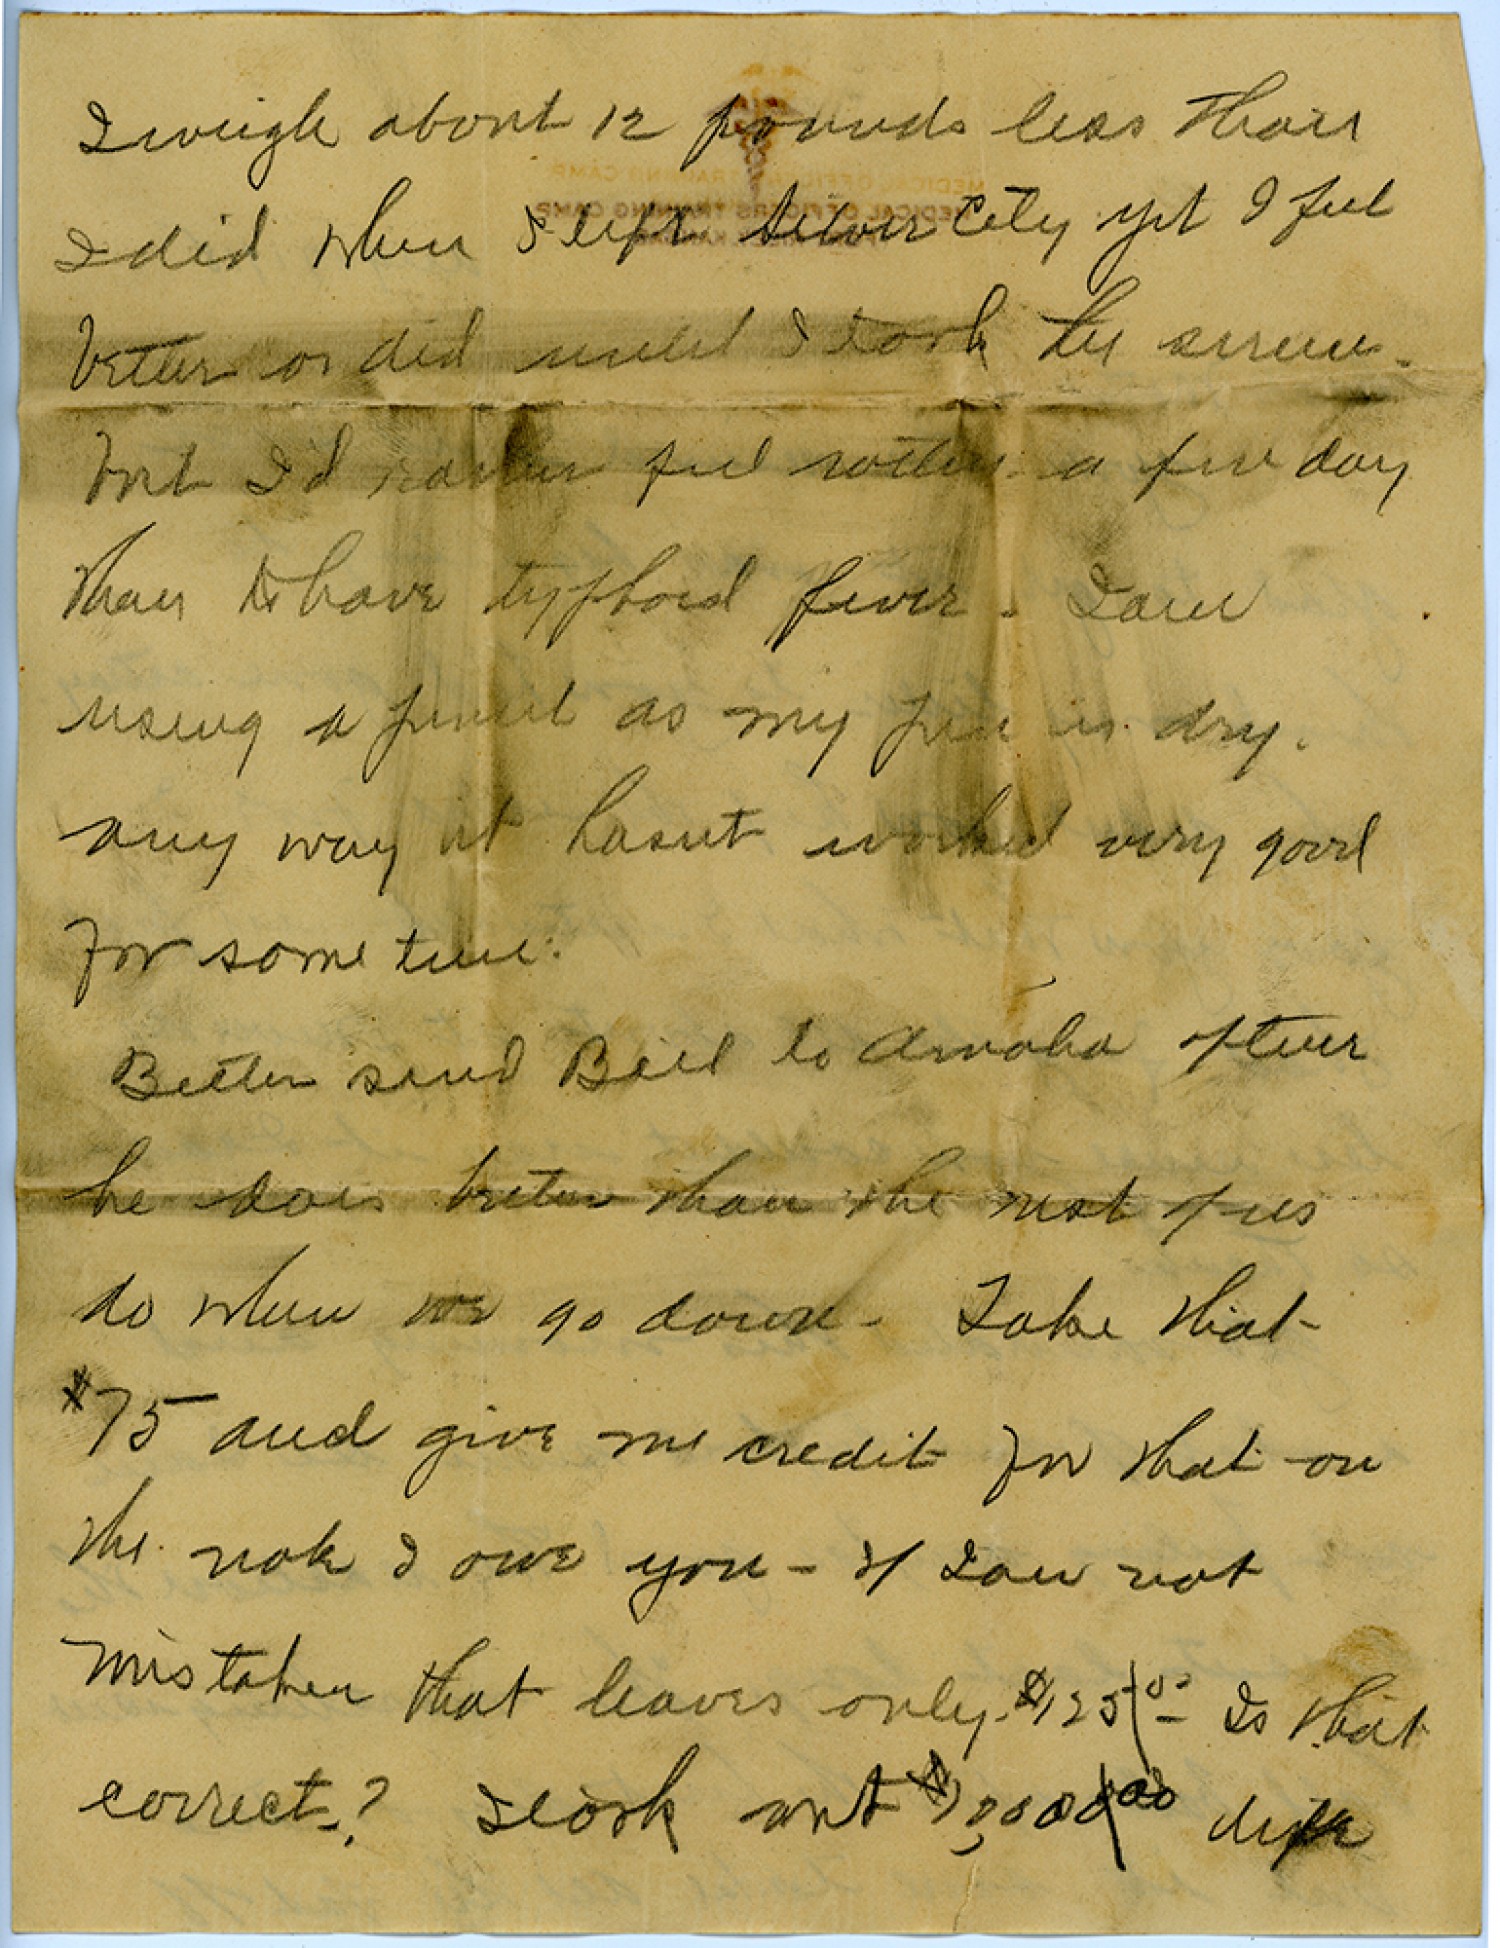 I weigh about 12 pounds less than
I did when I left Silver City yet I feel
better or did until I took the serum.
but I'd rather feel rotten a few day
than to have typhoid fever. I am
using a pencil as my pen is dry.
any way it hasnt worked very good
for some time.
Better send Bill to Omaha often
he does better than the rest of us
do when we go down - Take that
$75 and give me credit for that on
the note I owe you - if I am not
mistaken that leaves only $125/00 Is that
correct? I took out $10,000/00 life